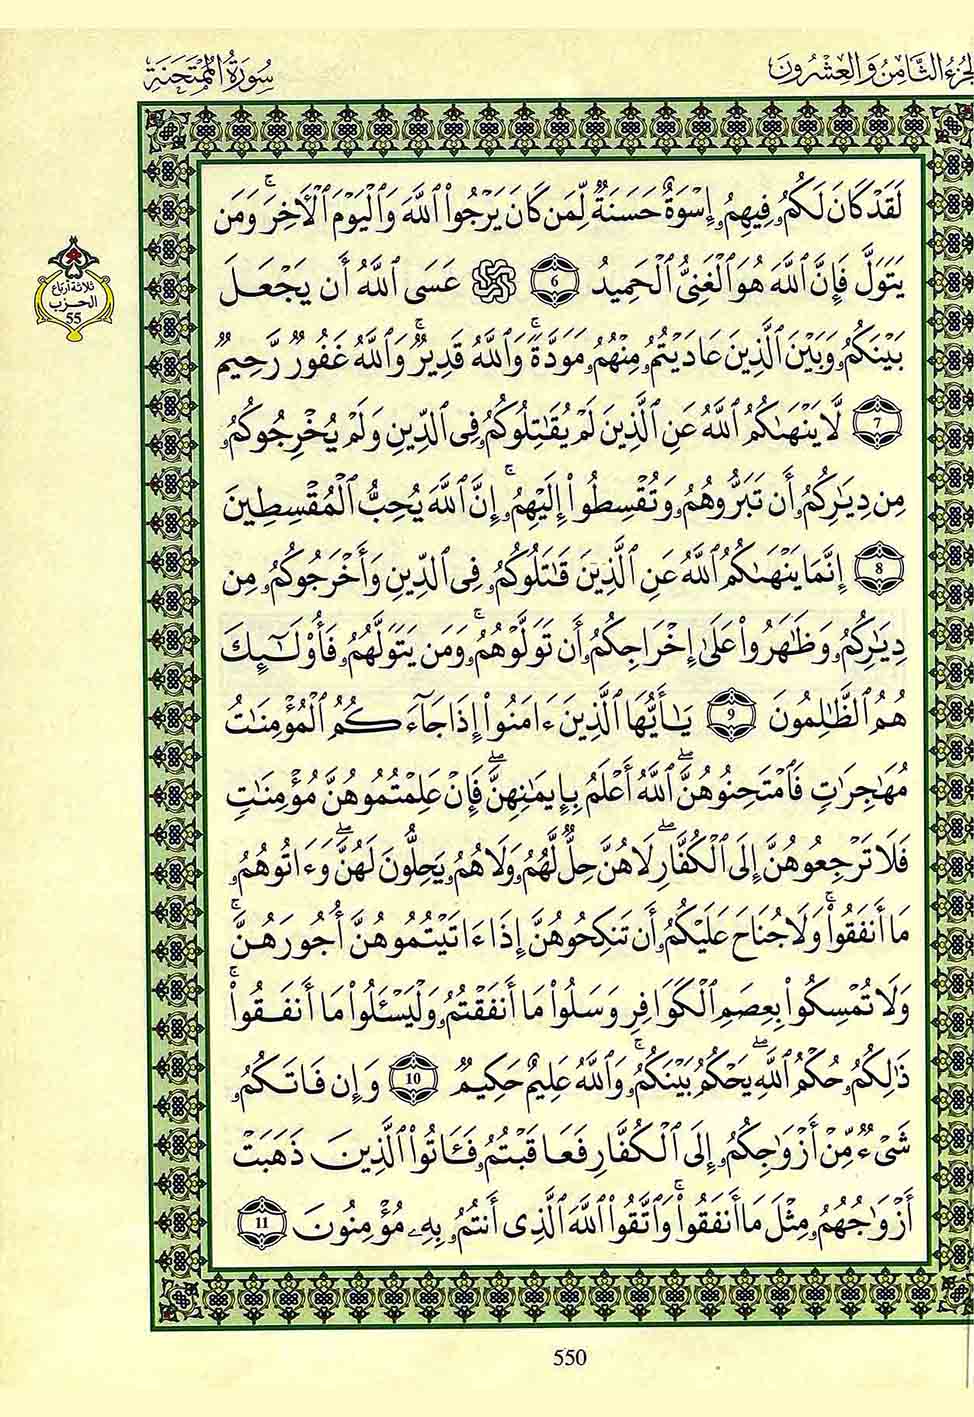 الجزء الثامن والعشرون
سورة الممتحنة
لَقَدْ كَانَ لَكُمُۥ فِيهِمُۥٓ إِسْوَةٌ حَسَنَةٌ لِّمَن كَانَ يَرْجُوا۟ ٱللَّهَ وَٱلْيَوْمَ ٱلْأَخِرَ ۚ وَمَن
يَتَوَلَّ فَإِنَّ ٱللَّهَ هُوَ ٱلْغَنِىُّ ٱلْحَمِيدُ 6 عَسَى ٱللَّهُ أَن يَجْعَلَ
ثلاثة أرباع
الحزب
55
بَيْنَكُمُۥ وَبَيْنَ ٱلَّذِينَ عَادَيْتُمُۥ مِنْهُمُۥ مَوَدَّةً ۚ وَٱللَّهُ قَدِيرٌ ۚ وَٱللَّهُ غَفُورٌ رَّحِيمٌ
7 لَّا يَنْهَىٰكُمُ ٱللَّهُ عَنِ ٱلَّذِينَ لَمْ يُقَـٰتِلُوكُمُۥ فِى ٱلدِّينِ وَلَمْ يُخْرِجُوكُمُۥ
مِن دِيَـٰرِكُمُۥٓ أَن تَبَرُّوهُمُۥ وَتُقْسِطُوٓا۟ إِلَيْهِمُۥٓ ۚ إِنَّ ٱللَّهَ يُحِبُّ ٱلْمُقْسِطِينَ
8 إِنَّمَا يَنْهَىٰكُمُ ٱللَّهُ عَنِ ٱلَّذِينَ قَـٰتَلُوكُمُۥ فِى ٱلدِّينِ وَأَخْرَجُوكُمُۥ مِن
دِيَـٰرِكُمُۥ وَظَـٰهَرُوا۟ عَلَىٰٓ إِخْرَاجِكُمُۥٓ أَن تَوَلَّوْهُمُۥ ۚ وَمَن يَتَوَلَّهُمُۥ فَأُو۟لَـٰٓئِكَ
هُمُ ٱلظَّـٰلِمُونَ 9 يَـٰٓأَيُّهَا ٱلَّذِينَ ءَامَنُوٓا۟ إِذَا جَآءَكُمُ ٱلْمُؤْمِنَـٰتُ
مُهَـٰجِرَٰتٍ فَٱمْتَحِنُوهُنَّ ۖ ٱللَّهُ أَعْلَمُ بِإِيمَـٰنِهِنَّ ۖ فَإِنْ عَلِمْتُمُوهُنَّ مُؤْمِنَـٰتٍ
فَلَا تَرْجِعُوهُنَّ إِلَى ٱلْكُفَّارِ ۖ لَا هُنَّ حِلٌّ لَّهُمُۥ وَلَا هُمُۥ يَحِلُّونَ لَهُنَّ ۖ وَءَاتُوهُمُۥ
مَا أَنفَقُوا۟ ۚ وَلَا جُنَاحَ عَلَيْكُمُۥٓ أَن تَنكِحُوهُنَّ إِذَآ ءَاتَيْتُمُوهُنَّ أُجُورَهُنَّ ۚ
وَلَا تُمْسِكُوا۟ بِعِصَمِ ٱلْكَوَافِرِ وَسَلُوا۟ مَا أَنفَقْتُمُۥ وَلْيَسْـَٔلُوا۟ مَا أَنفَقُوا۟ ۚ
ذَٰلِكُمُۥ حُكْمُ ٱللَّهِ ۖ يَحْكُمُ بَيْنَكُمُۥ ۚ وَٱللَّهُ عَلِيمٌ حَكِيمٌ 10 وَإِن فَاتَكُمُۥ
شَىْءٌ مِّنْ أَزْوَٰجِكُمُۥٓ إِلَى ٱلْكُفَّارِ فَعَاقَبْتُمُۥ فَـَٔاتُوا۟ ٱلَّذِينَ ذَهَبَتْ
أَزْوَٰجُهُمُۥ مِثْلَ مَا أَنفَقُوا۟ ۚ وَٱتَّقُوا۟ ٱللَّهَ ٱلَّذِىٓ أَنتُمُۥ بِهِۦ مُؤْمِنُونَ 11
550